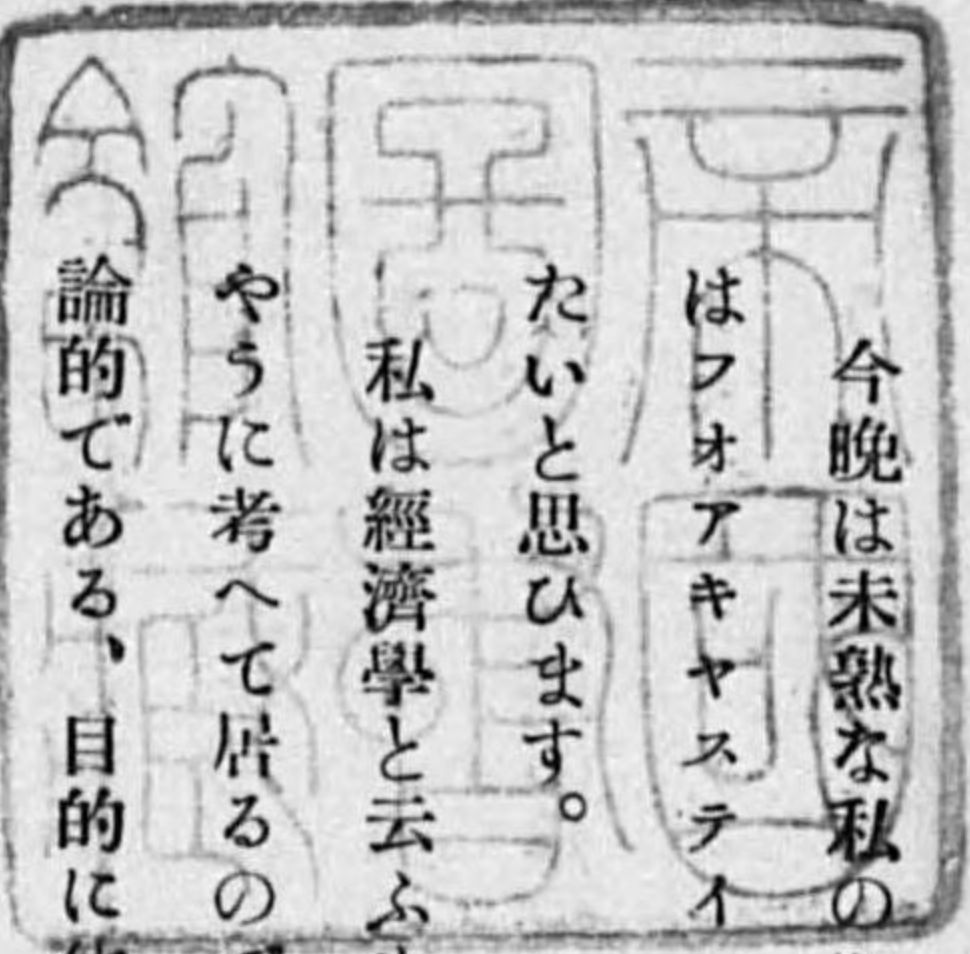 今晩は未熟な私の
はフオアキヤステイ
たいと思ひます。
私は經濟學と云ふ
やうに考へて居るの
論的である、目的に